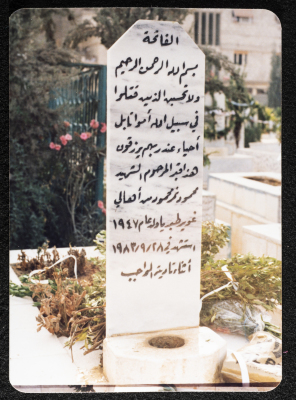 الفاتحة
بسم الله الرحمن الرحيم
ولا تحسبن الذين قتلوا
في سبيل الله أمواتا بل
أحياء عند ربهم يرزقون
هذا قبر المرحوم الشهيد
محمود نمر محمود من أهالي
غوير طبريا ولد عام ١٩٤٧
استشهد في ١٩٨٣/٩/٢٨
أثناء تأدية الواجب